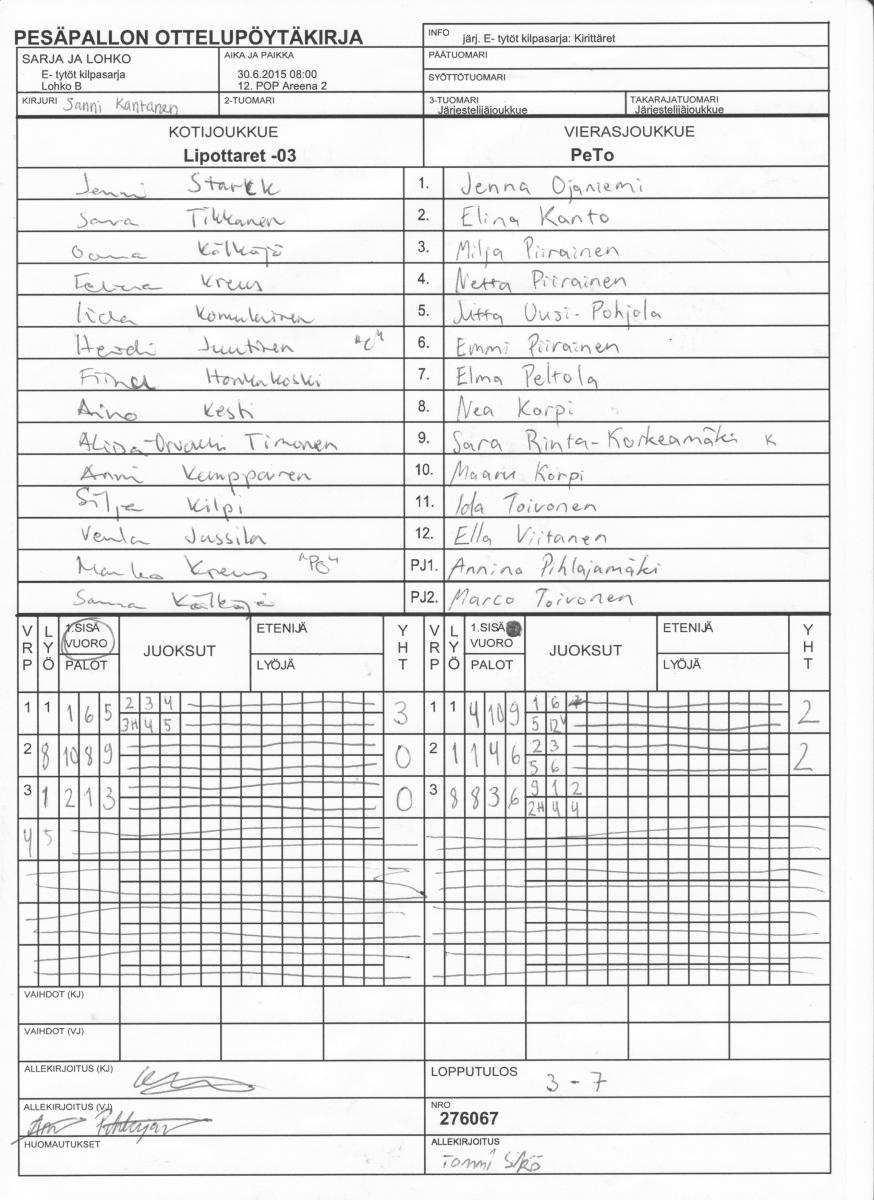 PESÄPALLON OTTELUPÖYTÄKIRJA
INFO järj. E- tytöt kilpasarja: Kirittäret
SARJA JA LOHKO
E- tytöt kilpasarja
Lohko B
AIKA JA PAIKKA
30.6.2015 08:00
12. POP Areena 2
PÄÄTUOMARI
SYÖTTÖTUOMARI
KIRJURI Sanni Kantanen
2-TUOMARI
3-TUOMARI
Järjestelijäjoukkue
TAKARAJATUOMARI
Järjestelijäjoukkue
KOTIJOUKKUE VIERASJOUKKUE
Lipottaret -03 PeTo
Jenni Starck 1. Jenna Ojaniemi
Sara Tikkanen 2. Elina Kanto
Oona Kälkäjä 3. Milja Piirainen
Kreus 4. Netta Piirainen
Iida Komulainen 5. Jutta Uusi-Pohjola
Heidi Juutinen "C" 6. Emmi Piirainen
Fiina Honkakoski 7. Elma Peltola
Aino Kesti 8. Nea Korpi
Timonen 9. Sara Rinta-Korkeamäki K
Anni Kemppainen 10. Maaru Korpi
Silja Kilpi 11. Ida Toivonen
Venla Jussila 12. Ella Viitanen
Marko Kreus "PO" PJ1. Annina Pihlajamäki
Sanna Kälkäjä PJ2. Marco Toivonen
VRP LYÖ 1.SISÄ VUORO PALOT JUOKSUT ETENIJÄ LYÖJÄ YHT VRP LYÖ 1.SISÄ VUORO PALOT JUOKSUT ETENIJÄ LYÖJÄ YHT
1 1 1 6 5 2 3 4 3 1 1 4 10 9 1 6 2
3H 4 5 5 12V
2 8 10 8 9 0 2 1 1 4 6 2 3 2
5 6
3 1 2 1 3 0 3 8 8 3 6 9 1 2
2H 4 4
4 5
VAIHDOT (KJ)
VAIHDOT (VJ)
ALLEKIRJOITUS (KJ)
LOPPUTULOS 3 - 7
ALLEKIRJOITUS (VJ)
NRO
276067
HUOMAUTUKSET
ALLEKIRJOITUS
Tommi